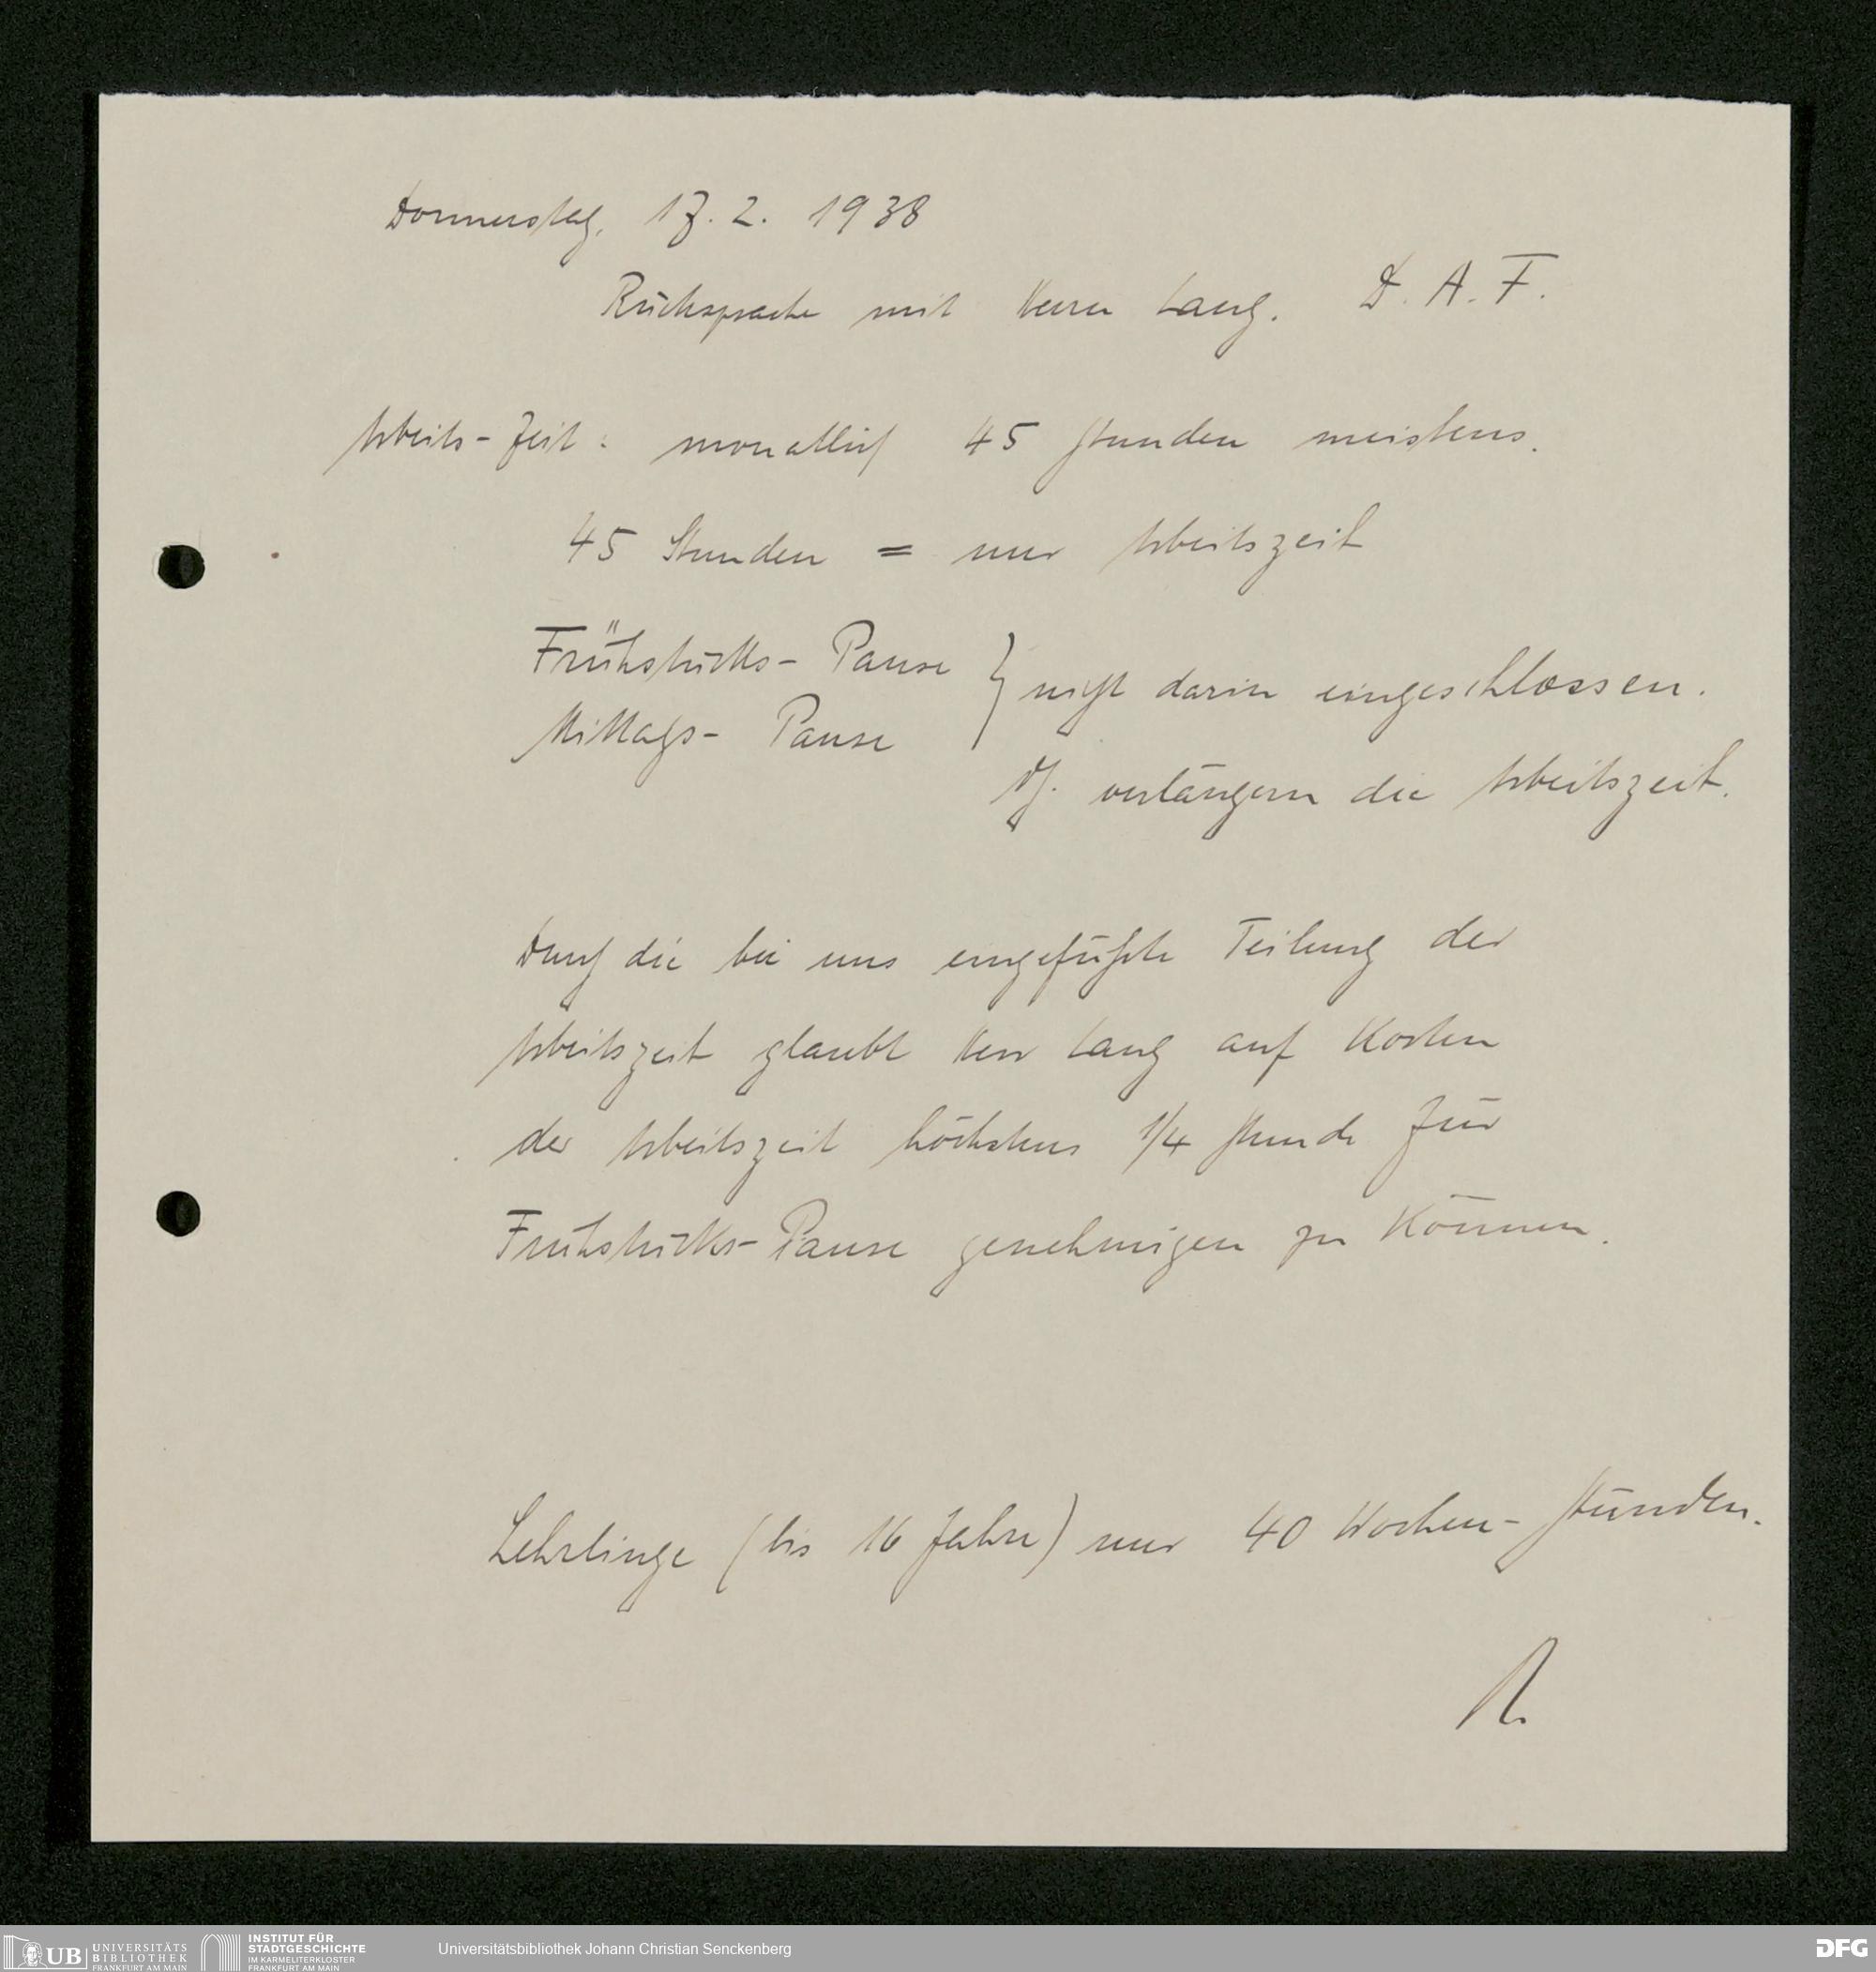 Donnerstag, 17. 2. 1938
Rücksprache mit Herrn Lang. D. A. F.
Arbeits-Zeit: monatlich 45 Stunden meistens.
45 Stunden = nur Arbeitszeit
Frühstücks- Pause } nicht darin eingeschlossen.
Mittags- Pause
verlängern die Arbeitszeit.
Durch die bei uns eingeführte Teilung der
Arbeitszeit glaubt Herr Lang auf Kosten
der Arbeitszeit höchstens 1/4 Stunde für
Frühstücks-Pause genehmigen zu können.
Lehrlinge (bis 16 Jahre) nur 40 Wochen-Stunden.
UB UNIVERSITÄTS
BIBLIOTHEK
FRANKFURT AM MAIN
INSTITUT FÜR
STADTGESCHICHTE
IM KARMELITERKLOSTER
FRANKFURT AM MAIN
Universitätsbibliothek Johann Christian Senckenberg
DFG